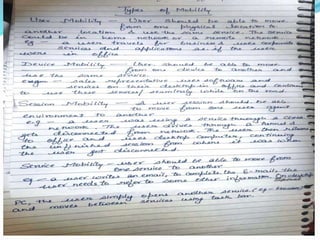 Types of Mobility
User Mobility - User should be able to move
from one physical location to
another location & use the same service. The service
could be in home network or a remote network
eg a user travels for business & uses corporate
services and applications as if the user
were in office
Device Mobility - User should be able to move
from one device to another and
use the same service.
eg - Sales representative uses software and
services on their desktop in office and continue
to use these services seamlessly while on the
Session Mobility - A user session should be able
to move from one user agent
environment to another
eg - a user was using a service through a
network. The device through a tunnel
gets disconnected from network. The user then returns
to office and uses desktop computer, continuing
the unfinished session from where it was when
the user got disconnected.
Service Mobility - user should be able to move from
one service to another
Eg - a user writes an email, to complete the E-mail, the
user needs to refer to some other information. On desktop
PC, the user simply opens another service
and moves between services using task bar.